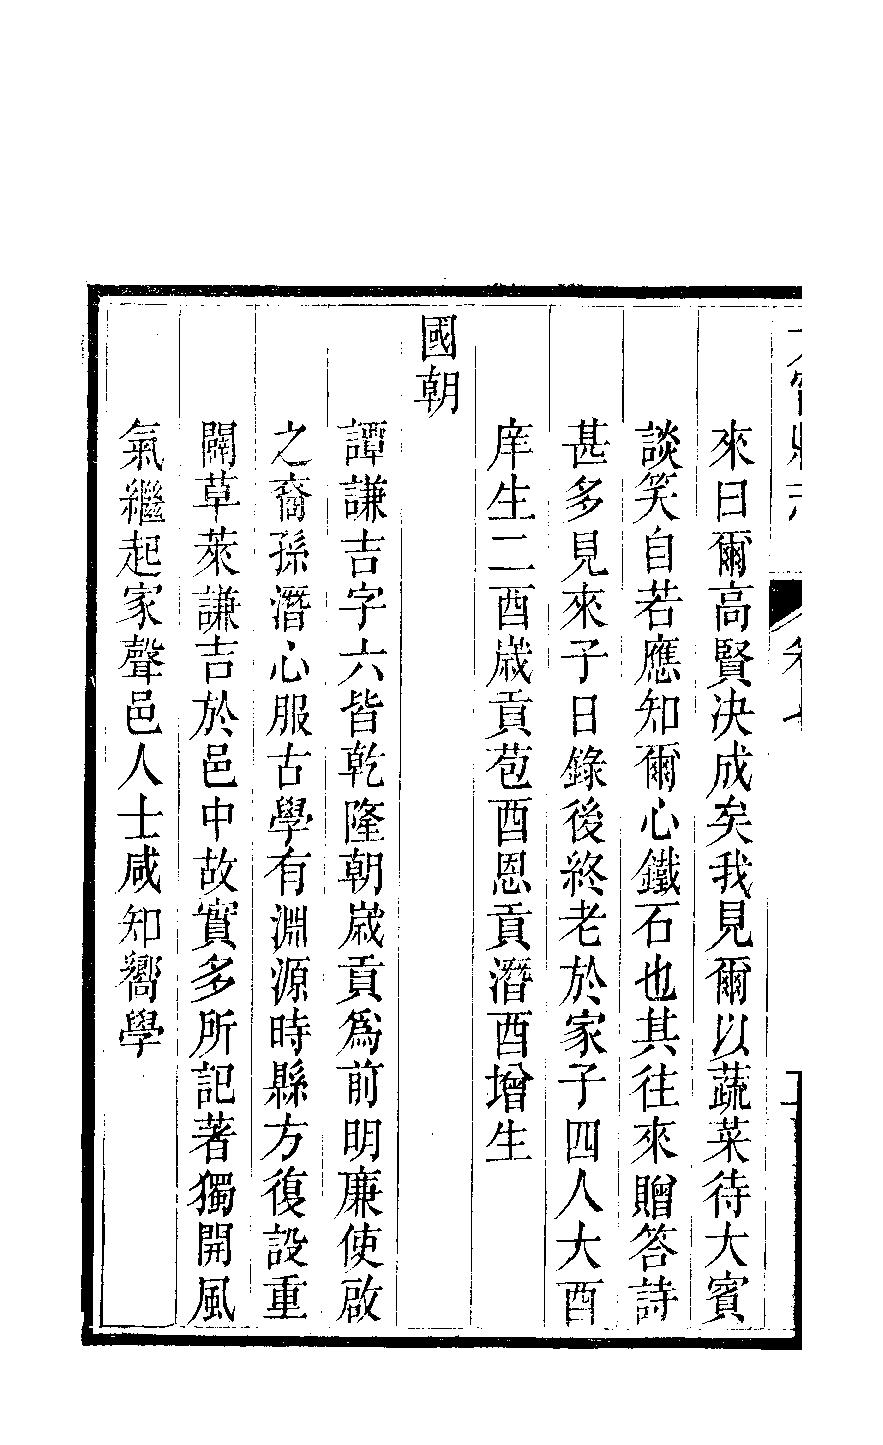 來曰爾高賢决成矣我見爾以蔬菜待大賓
談笑自若應知爾心鐵石也其往來贈答詩
甚多見來子日錄後終老於家子四人大酉
庠生二酉歲貢苞酉恩貢潛酉增生
國朝
譚謙吉字六皆乾隆朝歲貢爲前明廉使啟
之裔孫潛心服古學有淵源時縣方復設重
闢草萊謙吉於邑中故實多所記著獨開風
氣繼起家聲邑人士咸知嚮學